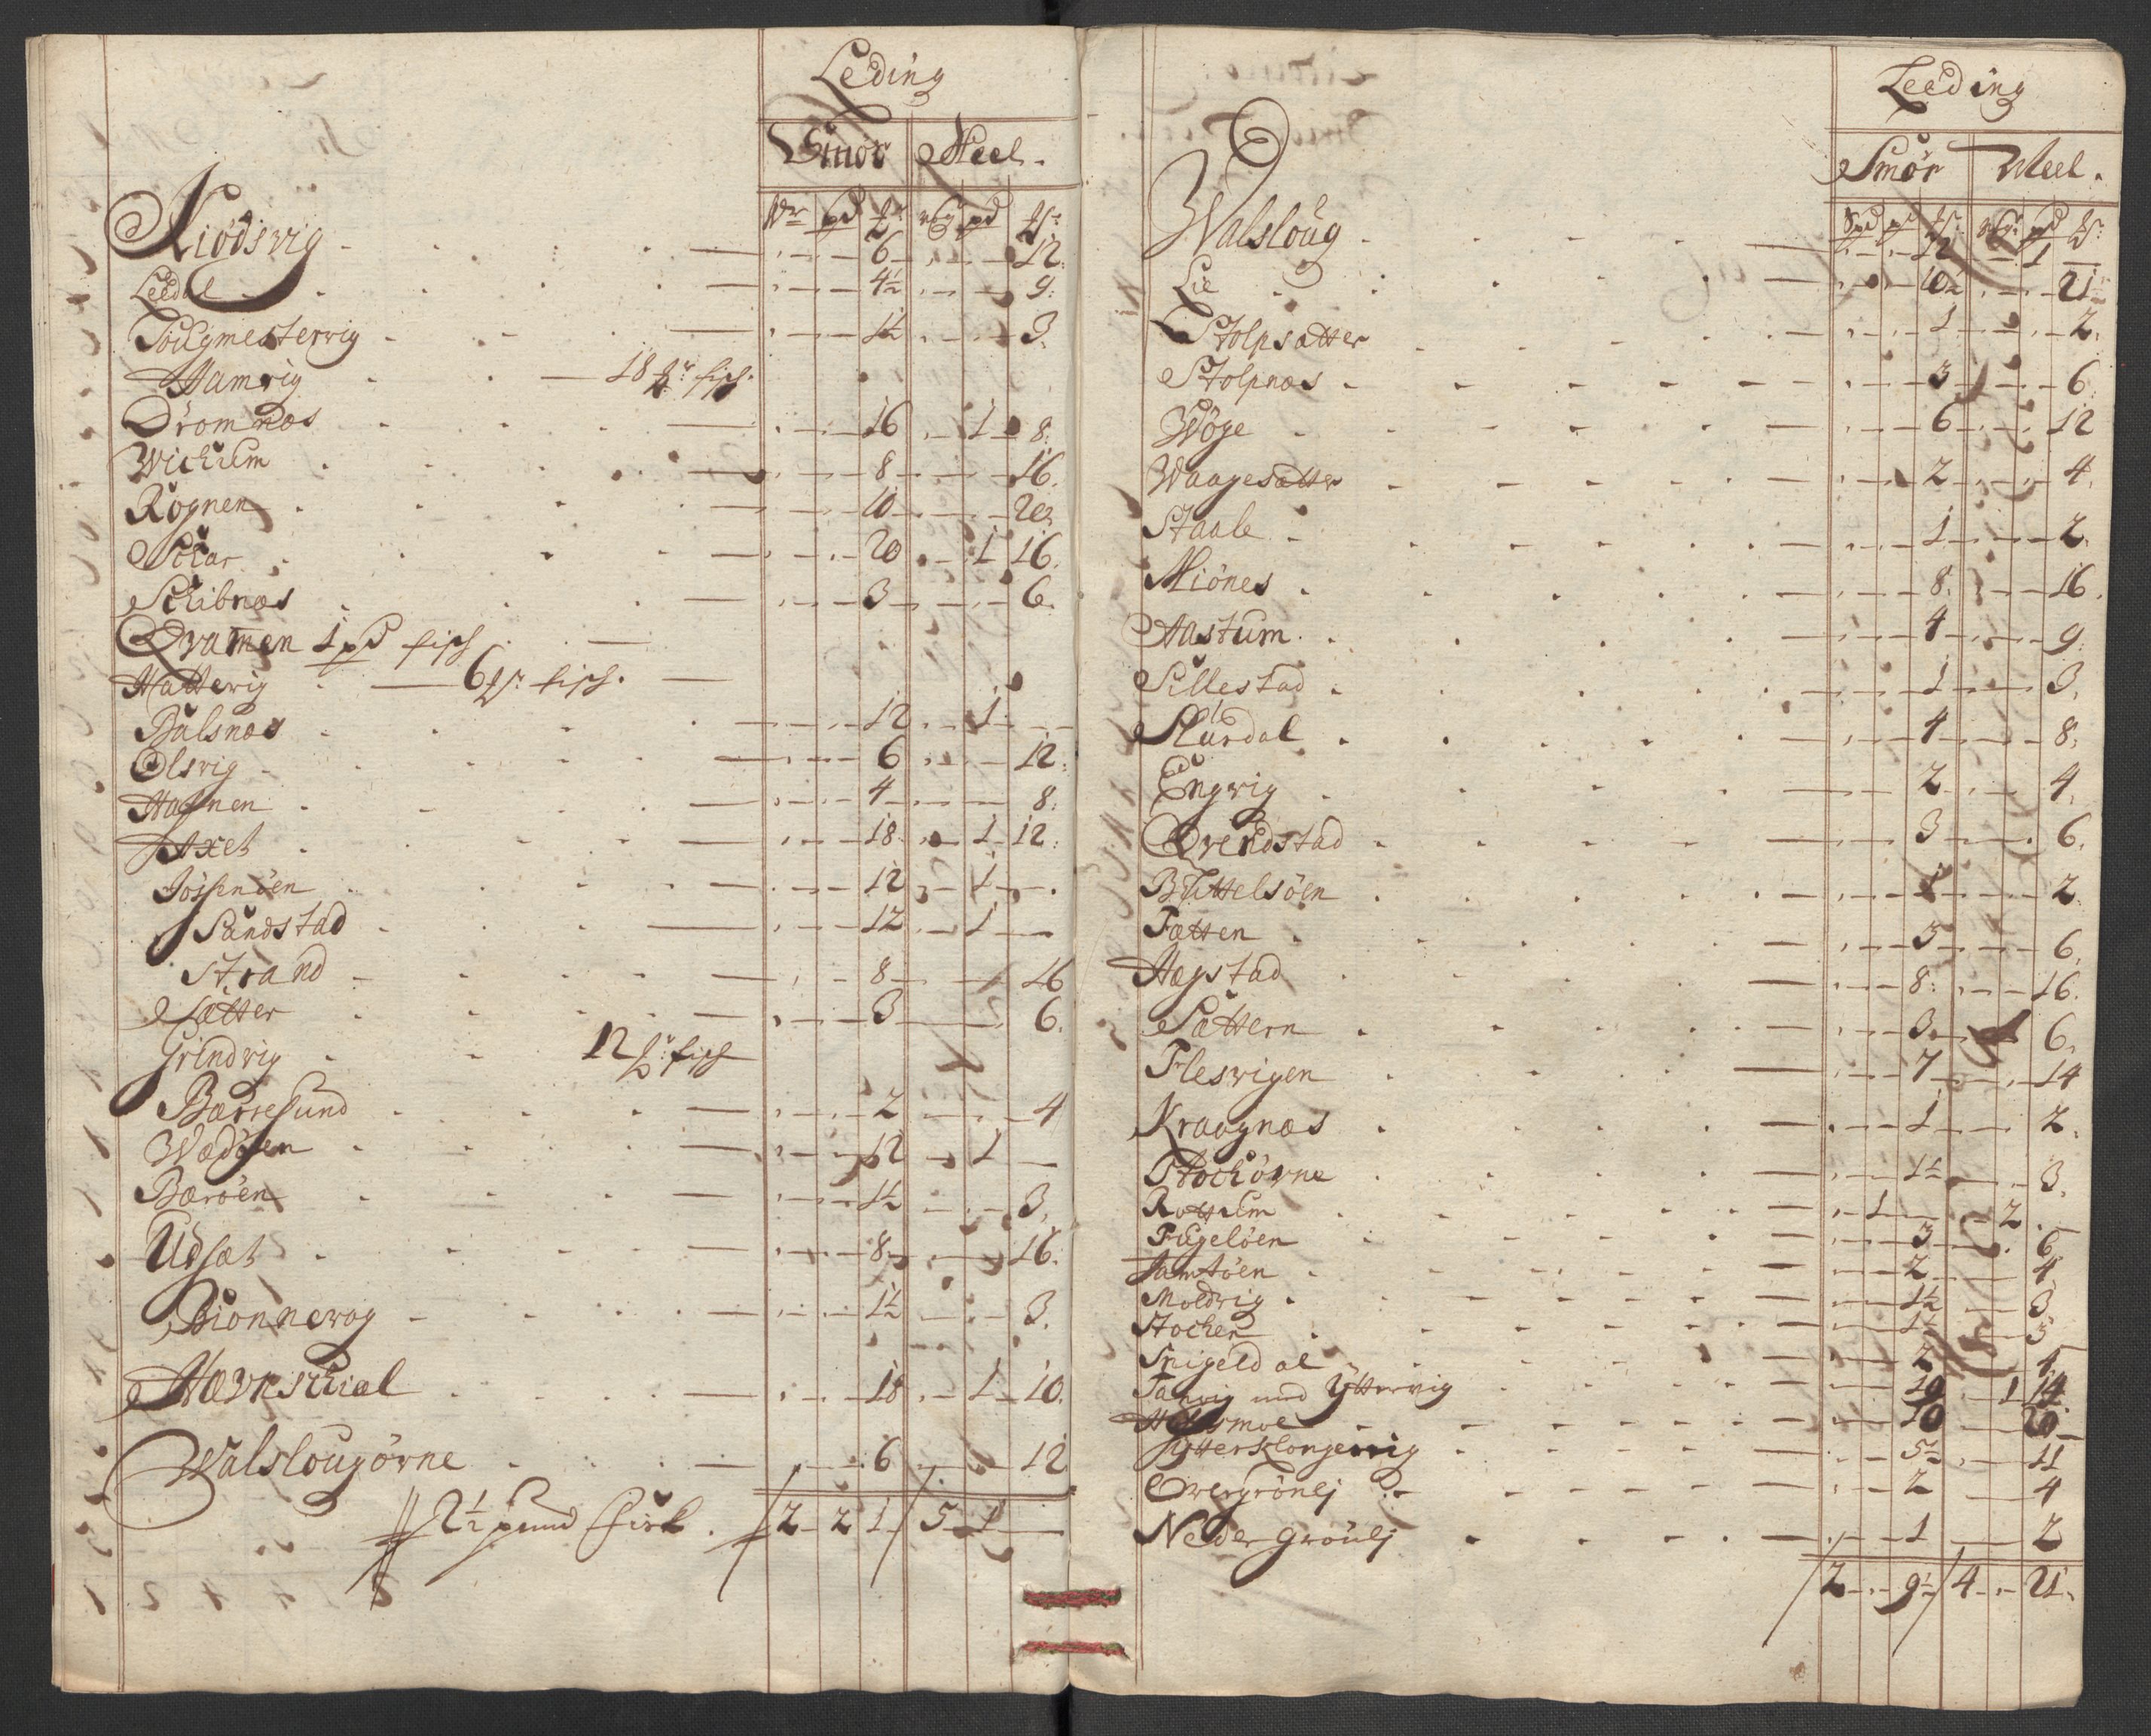 Leding
Smör Meel.
pd pd
Kiödsvig - 6 - 12.
Leedal - 4½ - 9.
Sougmestervig - 1½ - 3.
Hamvig - 18 fisch.
Dromnæs - 16 - 1 - 8.
Wichum - 8 - 16.
Rognen - 10 - 20.
Schar - 20 - 1 16.
Schibnæs - 3 - 6.
Qvamen 1 pd fisch
Hattevig - 6 fisch.
Balsnæs - 12 - 1 -
Olsvig - 6 - 12.
Hafnen - 4 - 8.
Axet - 18 - 1 - 12.
Jössenöen - 12 - 1 -
Sandstad - 12 - 1 -
Strand - 8 - 16
Sætter - 3 - 6.
Grindvig - 12 fisch
Bærresund - 2 - 4
Wædöen - 12 - 1 -
Bæröen - 1½ - 3.
Udsæt - 8 - 16.
Biönnevog - 1½ - 3.
Hævnskiæl - 18 - 1 - 10.
Walslougörne - 6 - 12
2½ pund fisk. 2 - 2 1 5 - 1 -
Leeding
Smör Meel.
pd pd
Walsloug - 12 - 1 -
Lie - 10½ - 21
Stolpsætter - 1 - 2.
Stolpnæs - 3 - 6
Wöge - 6 - 12
Waagesætter - 2 - 4.
Staale - 1 - 2.
Miönes - 8 - 16.
Aastum - 4 - 9.
Sillestad - 1 - 3.
Slürdal - 4 - 8.
Engvig - 2 - 4.
Qvendstad - 3 - 6.
Büttelsöen - 1 - 2.
Fætten - 3 - 6.
Hægstad - 8 - 16.
Sættern - 3 - 6.
Flesvigen - 7 - 14
Kraagnæs - 1 - 2.
Stochörne - 1½ - 3.
Rottum - 1 - 2 -
Fugelöen - 3 - 6
Jamtöen - 2 - 4
Moldvig - 1½ - 3.
Stochen - 1½ - 3
Snigeldal - 2 - 4
Tanvig und Yttervig - 19 - 1 14
- 10 - 20
Ytterklongervig - 5½ - 11
Overgrönlj - 2 - 4
Neder grönlj - 1 - 2
2 - 9½ 4 - 21.